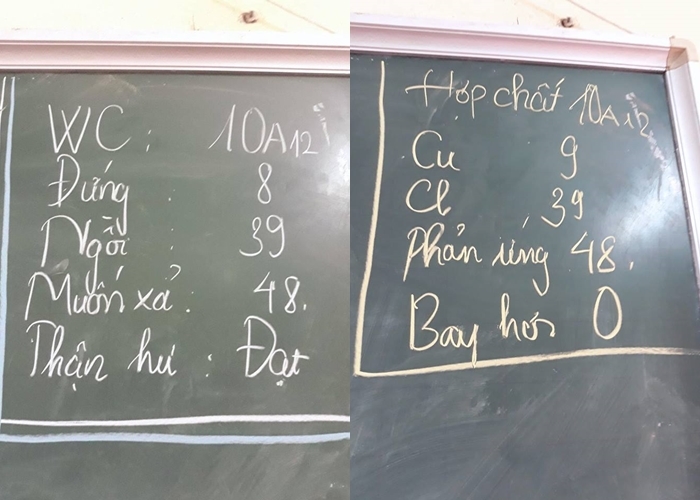 WC : 10A12
Đứng : 8
Ngồi : 39
Muốn xả : 48.
Thận hư : Đạt
Hợp chất 10A12
Cu 9
Cl 39
Phản ứng 48.
Bay hơi 0